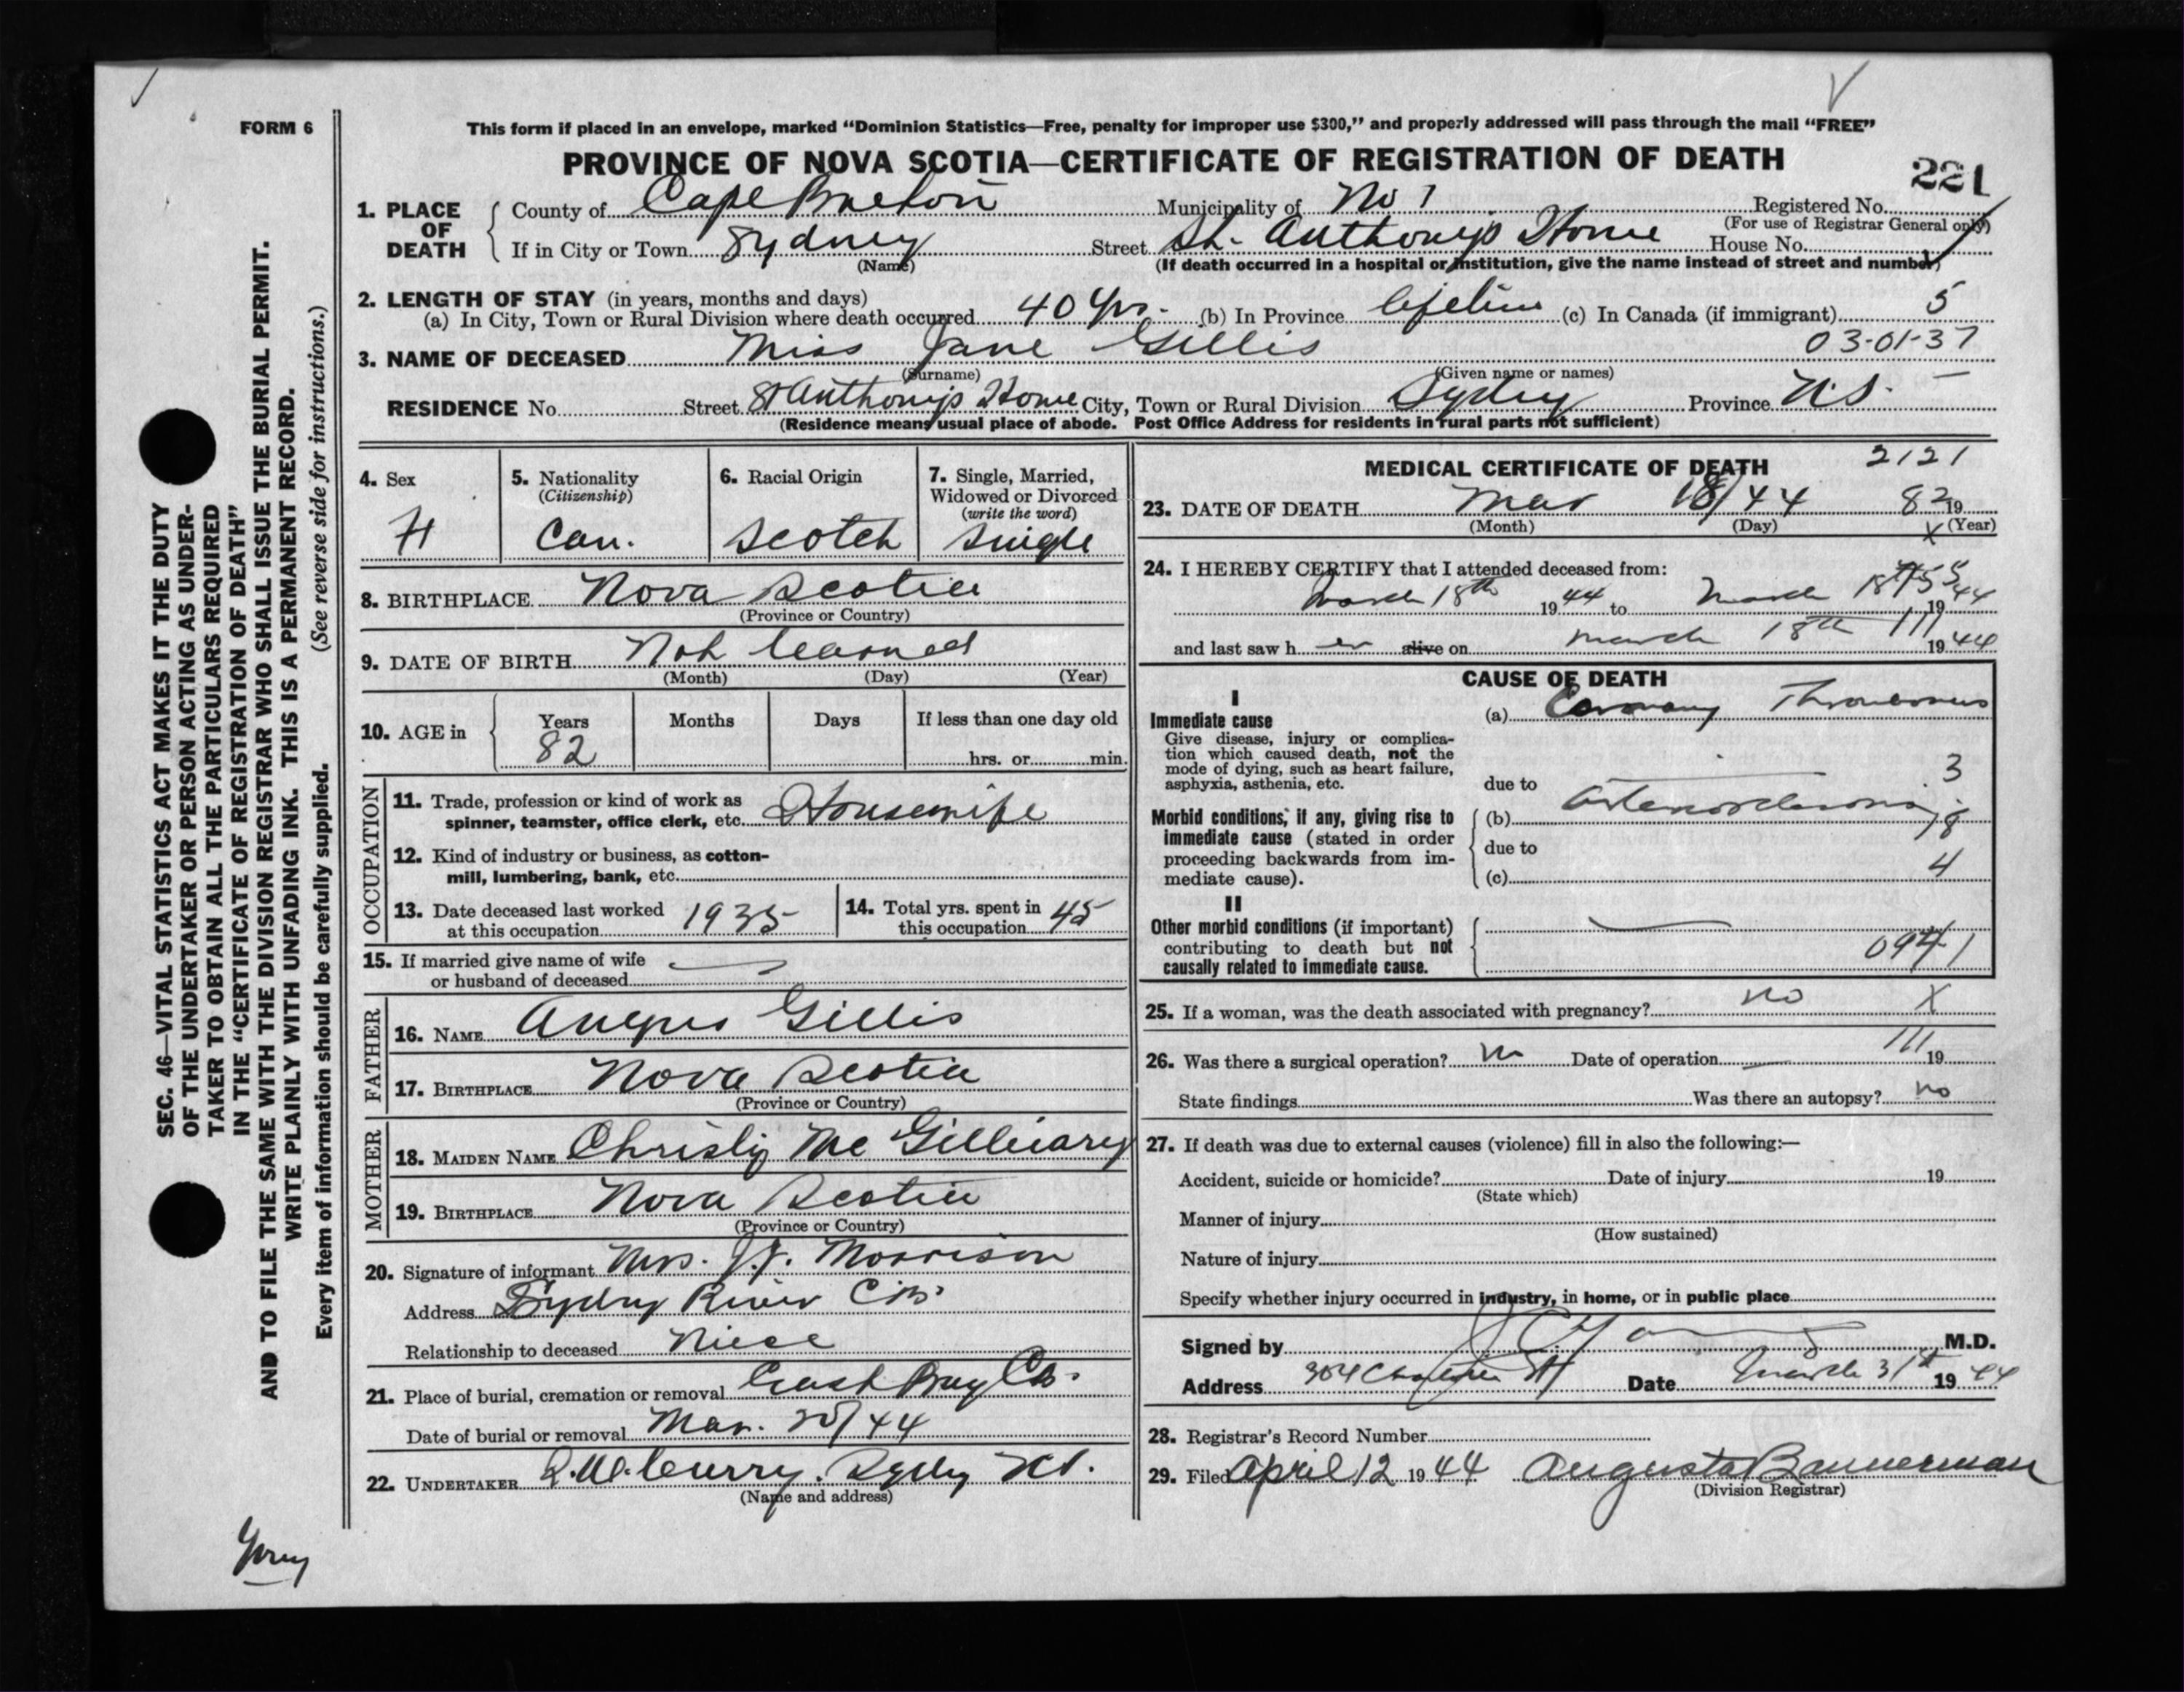 FORM 6
This form if placed in an envelope, marked “Dominion Statistics—Free, penalty for improper use $300,” and properly addressed will pass through the mail “FREE”
PROVINCE OF NOVA SCOTIA—CERTIFICATE OF REGISTRATION OF DEATH
221
1. PLACE OF DEATH
County of Cape Breton Municipality of No 1 Registered No.
(For use of Registrar General only)
If in City or Town Sydney Street St. Anthony's Home House No.
(Name) (If death occurred in a hospital or institution, give the name instead of street and number)
2. LENGTH OF STAY (in years, months and days)
(a) In City, Town or Rural Division where death occurred 40 yrs. (b) In Province lifetime (c) In Canada (if immigrant) 5
3. NAME OF DECEASED Miss Jane Gillis 03-01-37
(Surname) (Given name or names)
RESIDENCE No. Street St Anthony's Home City, Town or Rural Division Sydney Province N.S.
(Residence means usual place of abode. Post Office Address for residents in rural parts not sufficient)
4. Sex
5. Nationality
(Citizenship)
Can.
6. Racial Origin
Scotch
7. Single, Married, Widowed or Divorced
(write the word)
Single
8. BIRTHPLACE Nova Scotia
(Province or Country)
9. DATE OF BIRTH Not learned
(Month) (Day) (Year)
10. AGE in
Years Months Days If less than one day old
82 hrs. or min.
OCCUPATION
11. Trade, profession or kind of work as
spinner, teamster, office clerk, etc. Housewife
12. Kind of industry or business, as cotton-
mill, lumbering, bank, etc.
13. Date deceased last worked
at this occupation 1935
14. Total yrs. spent in
this occupation 45
15. If married give name of wife
or husband of deceased
FATHER
16. NAME Angus Gillis
17. BIRTHPLACE Nova Scotia
(Province or Country)
MOTHER
18. MAIDEN NAME Christy Mc Gillivary
19. BIRTHPLACE Nova Scotia
(Province or Country)
20. Signature of informant Mrs. J.J. Morrison
Address Sydney River C.B.
Relationship to deceased Niece
21. Place of burial, cremation or removal East Bay C.B.
Date of burial or removal Mar. 20/44
22. UNDERTAKER Curry. Sydney N.S.
(Name and address)
MEDICAL CERTIFICATE OF DEATH 2121
23. DATE OF DEATH Mar 18/44 82 19
(Month) (Day) (Year)
X
24. I HEREBY CERTIFY that I attended deceased from:
March 18th 1944 to March 18th 1944
and last saw her alive on March 18th 1944
CAUSE OF DEATH
I
Immediate cause
Give disease, injury or complica-
tion which caused death, not the
mode of dying, such as heart failure,
asphyxia, asthenia, etc.
(a) Coronary Thrombosis
3
due to
Morbid conditions, if any, giving rise to
immediate cause (stated in order
proceeding backwards from im-
mediate cause).
(b) Arteriosclerosis
18
due to
4
(c)
II
Other morbid conditions (if important)
contributing to death but not
causally related to immediate cause.
0941
25. If a woman, was the death associated with pregnancy? no X
26. Was there a surgical operation? no Date of operation 19
State findings Was there an autopsy? no
27. If death was due to external causes (violence) fill in also the following:—
Accident, suicide or homicide? Date of injury 19
(State which)
Manner of injury
(How sustained)
Nature of injury
Specify whether injury occurred in industry, in home, or in public place
Signed by M.D.
Address 304 Charlotte St Date March 31st 1944
28. Registrar's Record Number
29. Filed April 12 1944 Augusta Bannerman
(Division Registrar)
SEC. 46—VITAL STATISTICS ACT MAKES IT THE DUTY
OF THE UNDERTAKER OR PERSON ACTING AS UNDER-
TAKER TO OBTAIN ALL THE PARTICULARS REQUIRED
IN THE “CERTIFICATE OF REGISTRATION OF DEATH”
AND TO FILE THE SAME WITH THE DIVISION REGISTRAR WHO SHALL ISSUE THE BURIAL PERMIT.
WRITE PLAINLY WITH UNFADING INK. THIS IS A PERMANENT RECORD.
Every item of information should be carefully supplied. (See reverse side for instructions.)